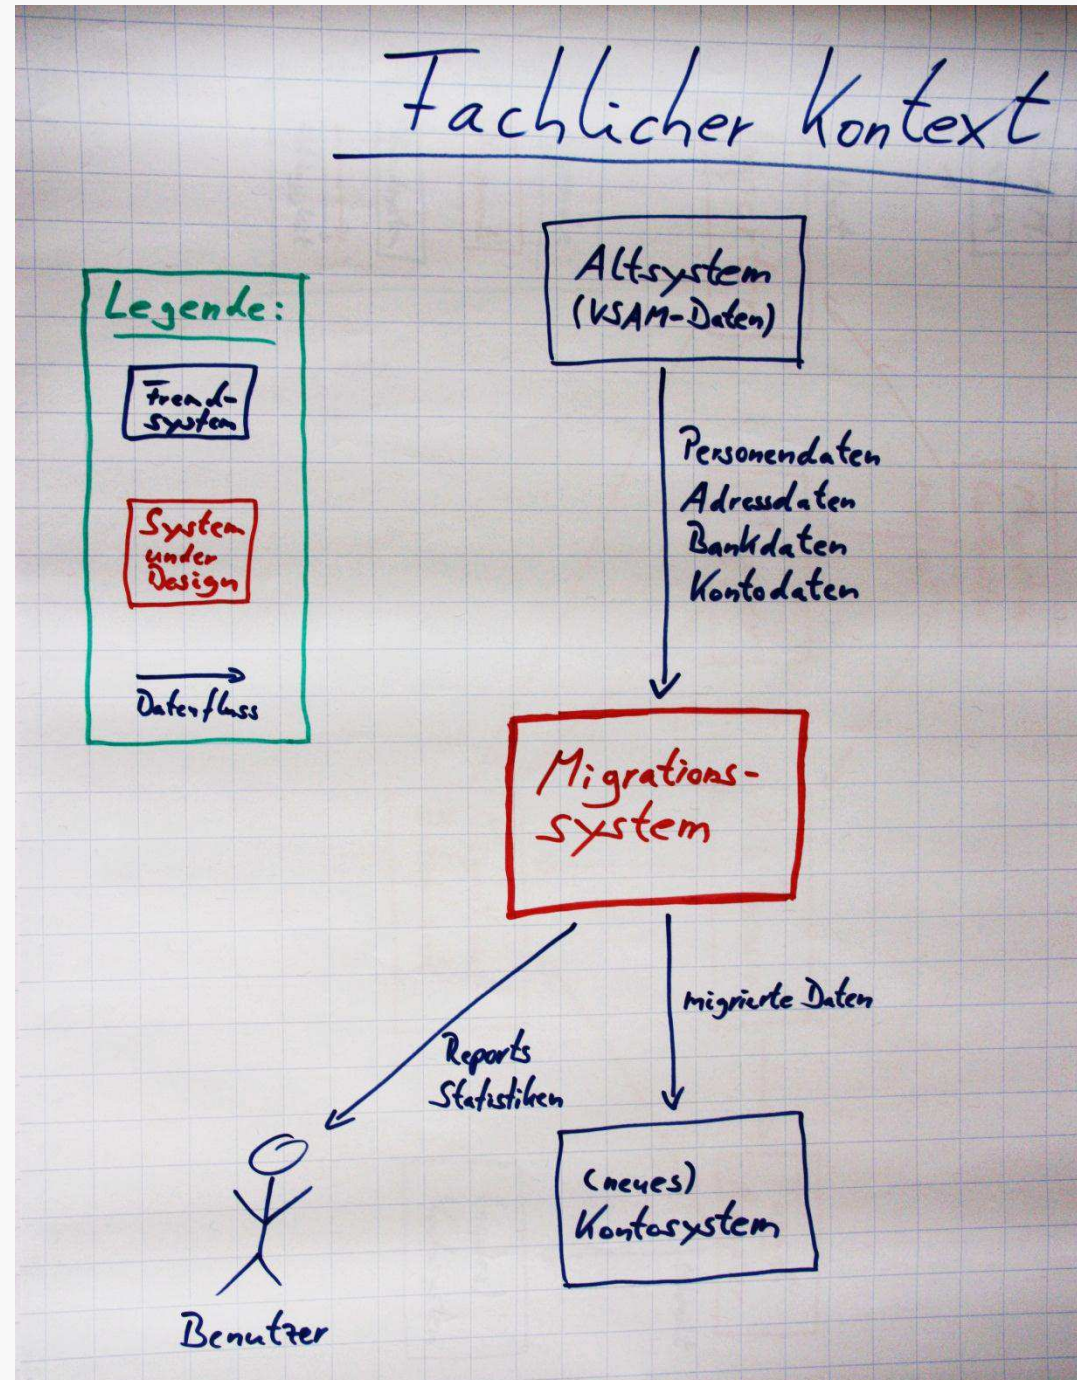 Fachlicher Kontext
Legende:
Fremd-
system
System
under
Design
Datenfluss
Altsystem
(VSAM-Daten)
Personendaten
Adressdaten
Bankdaten
Kontodaten
Migrations-
system
Reports
Statistiken
migrierte Daten
Benutzer
(neues)
Kontosystem